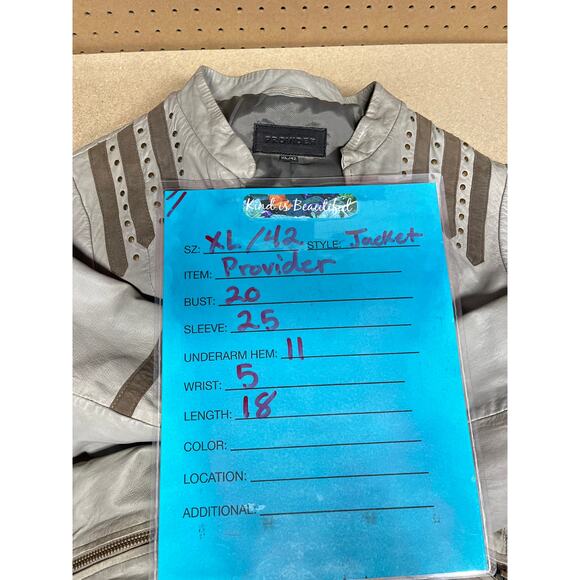 PROVIDER
XL/42
Kind is Beautiful
SZ: XL/42 STYLE: Jacket
ITEM: Provider
BUST: 20
SLEEVE: 25
UNDERARM HEM: 11
WRIST: 5
LENGTH: 18
COLOR:
LOCATION:
ADDITIONAL: